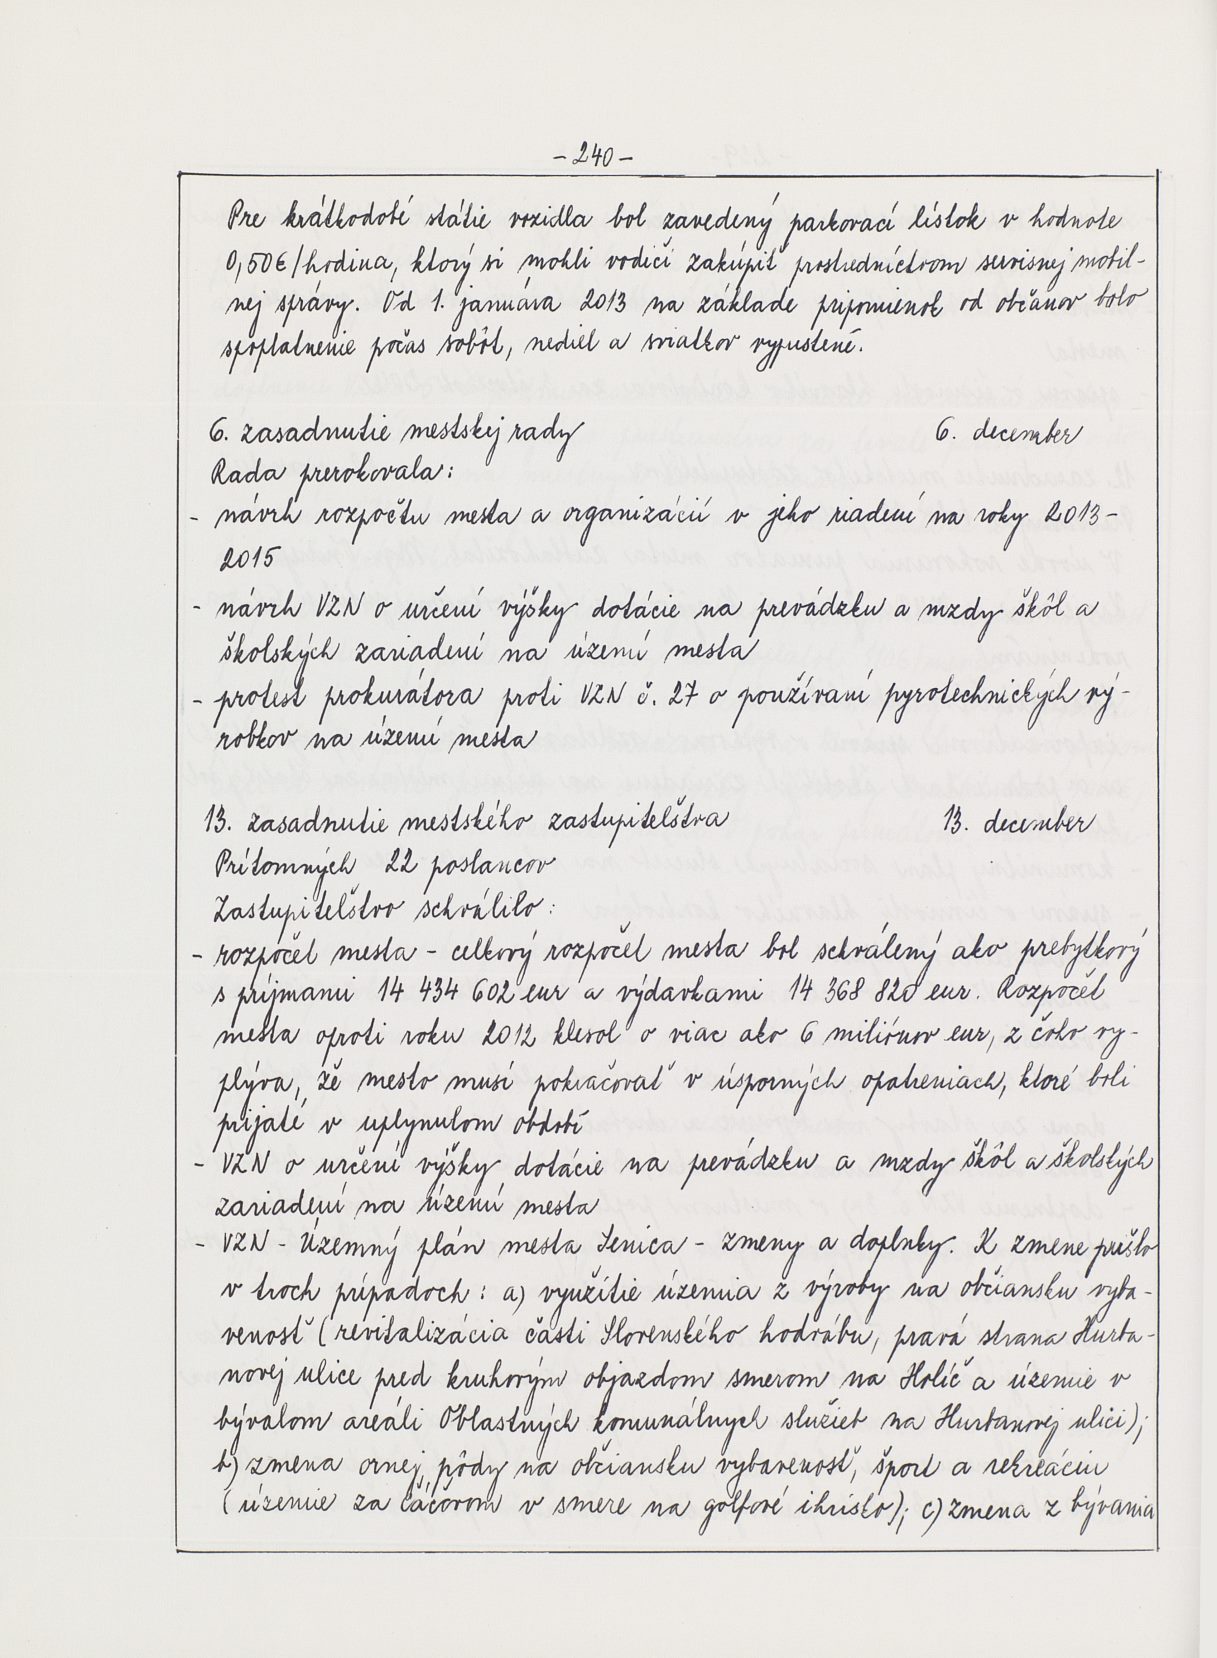 - 240 -
Pre krátkodobé státie vozidla bol zavedený parkovací lístok v hodnote
0,50€/hodina, ktorý si mohli vodiči zakúpiť prostredníctvom servisnej mobil-
nej správy. Od 1. januára 2013 na základe pripomienok od občanov bolo
spoplatnenie počas sobôt, nediel a sviatkov vypustené.
6. zasadnutie mestskej rady 6. december
Rada prerokovala:
- návrh rozpočtu mesta a organizácií v jeho riadení na roky 2013-
2015
- návrh VZN o určení výšky dotácie na prevádzku a mzdy škôl a
školských zariadení na území mesta
- protest prokurátora proti VZN č. 27 o používaní pyrotechnických vý-
robkov na území mesta
13. zasadnutie mestského zastupiteľstva 13. december
Prítomných 22 poslancov
Zastupiteľstvo schválilo:
- rozpočet mesta - celkový rozpočet mesta bol schválený ako prebytkový
s príjmami 14 434 602 eur a výdavkami 14 368 820 eur. Rozpočet
mesta oproti roku 2012 klesol o viac ako 6 miliónov eur, z čoho vy-
plýva, že mesto musí pokračovať v úsporných opatreniach, ktoré boli
prijaté v uplynulom období
- VZN o určení výšky dotácie na prevádzku a mzdy škôl a školských
zariadení na území mesta
- VZN - Územný plán mesta Senica - zmeny a doplnky. K zmene prišlo
v troch prípadoch: a) využitie územia z výroby na občiansku vyba-
venosť (revitalizácia časti Slovenského hodvábu, pravá strana Hurba-
novej ulice pred kruhovým objazdom smerom na Holíč a územie v
bývalom areáli Oblastných komunálnych služieb na Hurbanovej ulici);
b) zmena ornej pôdy na občiansku vybavenosť, šport a rekreáciu
(územie za Čáčovom v smere na golfové ihrisko); c) zmena z bývania